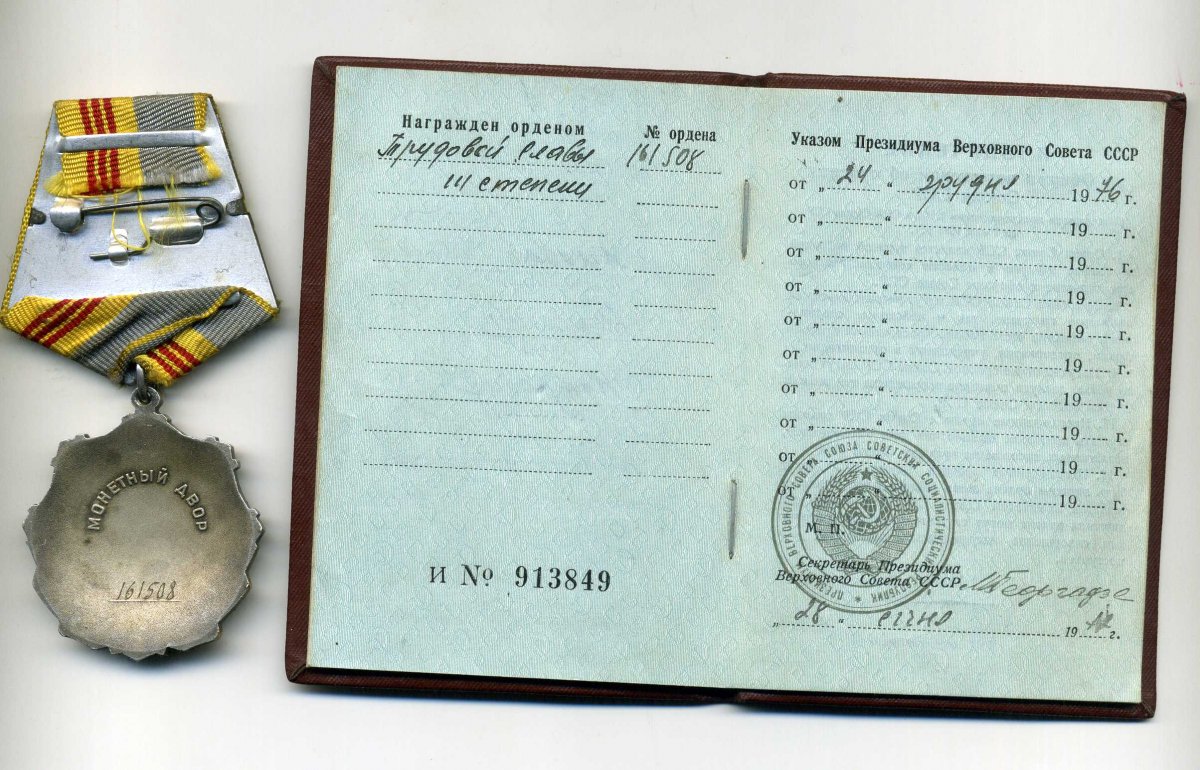 МОНЕТНЫЙ ДВОР
161508
Награжден орденом
№ ордена
Трудовой Славы
161508
III степени
И № 913849
Указом Президиума Верховного Совета СССР
от „ 24 “ грудня 1976 г.
от „ “ 19 г.
от „ “ 19 г.
от „ “ 19 г.
от „ “ 19 г.
от „ “ 19 г.
от „ “ 19 г.
от „ “ 19 г.
от „ “ 19 г.
от „ “ 19 г.
М. П.
ВЕРХОВНОГО СОЮЗА СОВЕТСКИХ СОЦИАЛИСТИЧЕСКИХ
Секретарь Президиума
Верховного Совета СССР
МГеоргадзе
„ 28 “ січня 19 г.